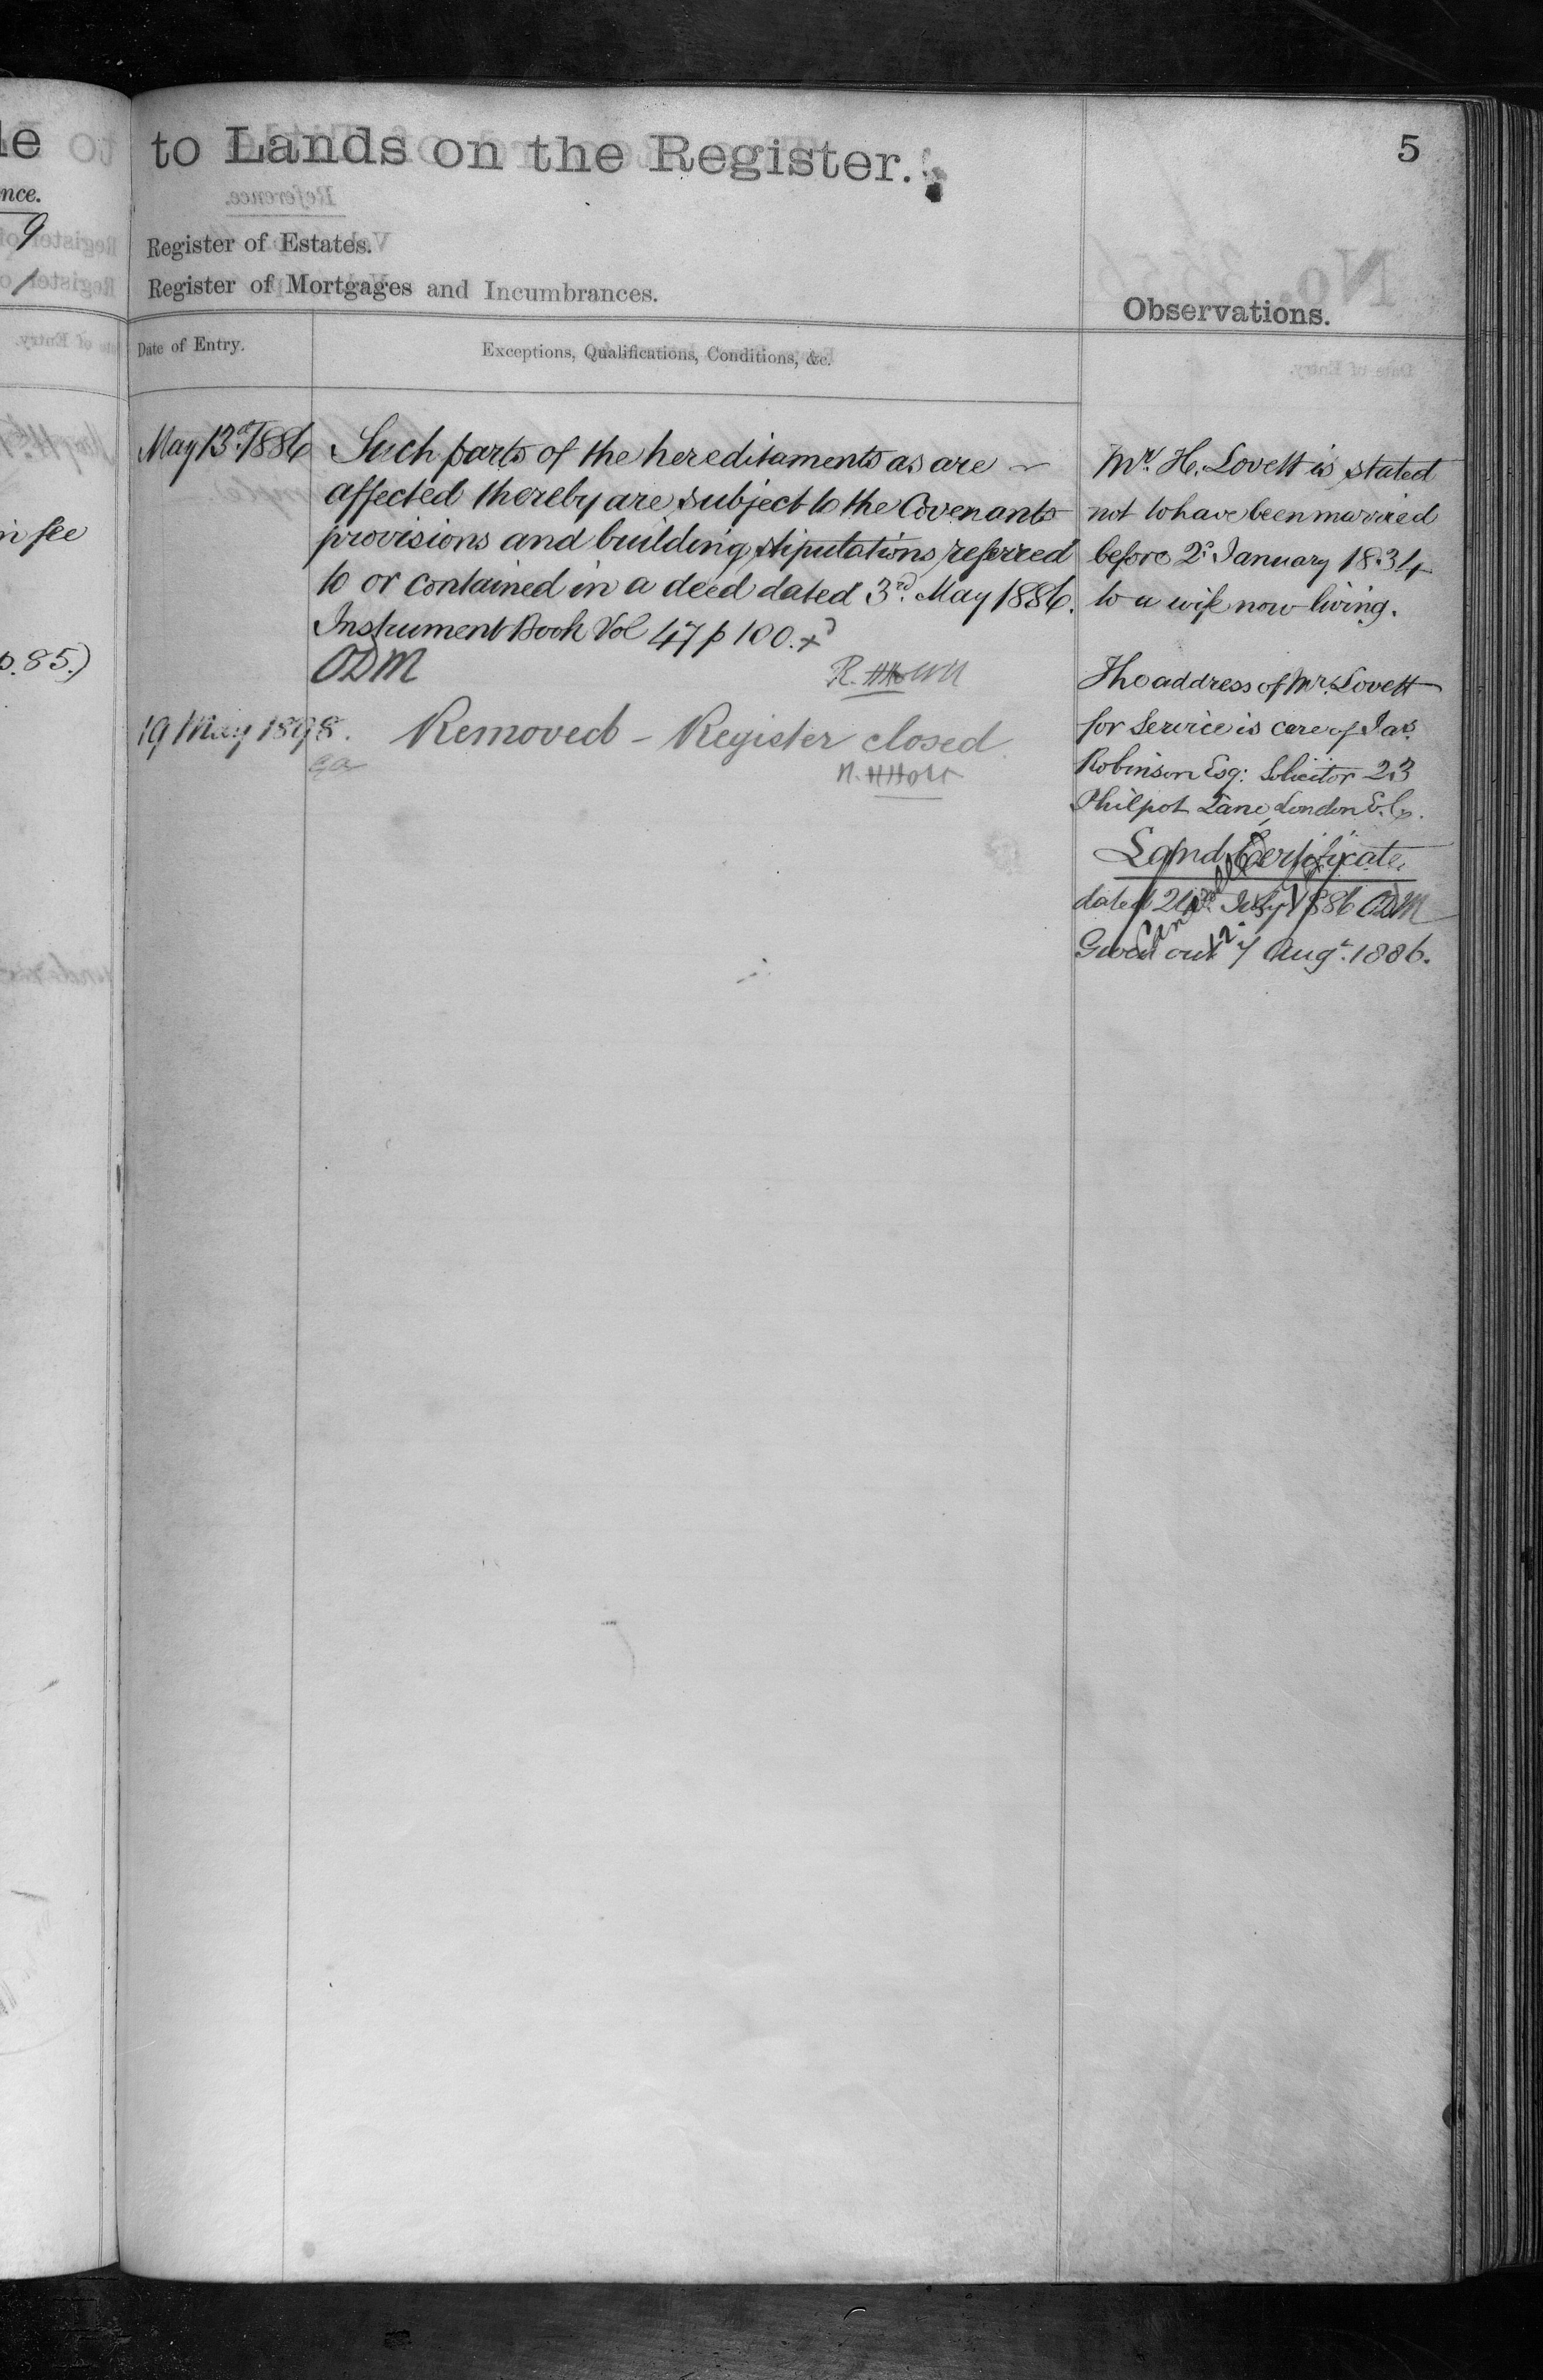 le
nce.
9
1
in fee
p. 85.)
to Lands on the Register.
5
Register of Estates.
Register of Mortgages and Incumbrances.
Observations.
Date of Entry.
Exceptions, Qualifications, Conditions, &c.
May 13th 1886
Such parts of the hereditaments as are
affected thereby are subject to the Covenants
provisions and building stipulations referred
to or contained in a deed dated 3rd. May 1886.
Instrument Book Vol 47 p 100. +
ODM
R. HHolt
19 May 1898.
Removed - Register closed
R. HHolt
Mr. H. Lovett is stated
not to have been married
before 2d January 1834
to a wife now living.
The address of Mr. Lovett
for Service is care of Jas.
Robinson Esq: Solicitor 23
Philpot Lane, London E.C.
Land Certificate
dated July 1886 ODM
Given out 7 Augt. 1886.
Cancelled